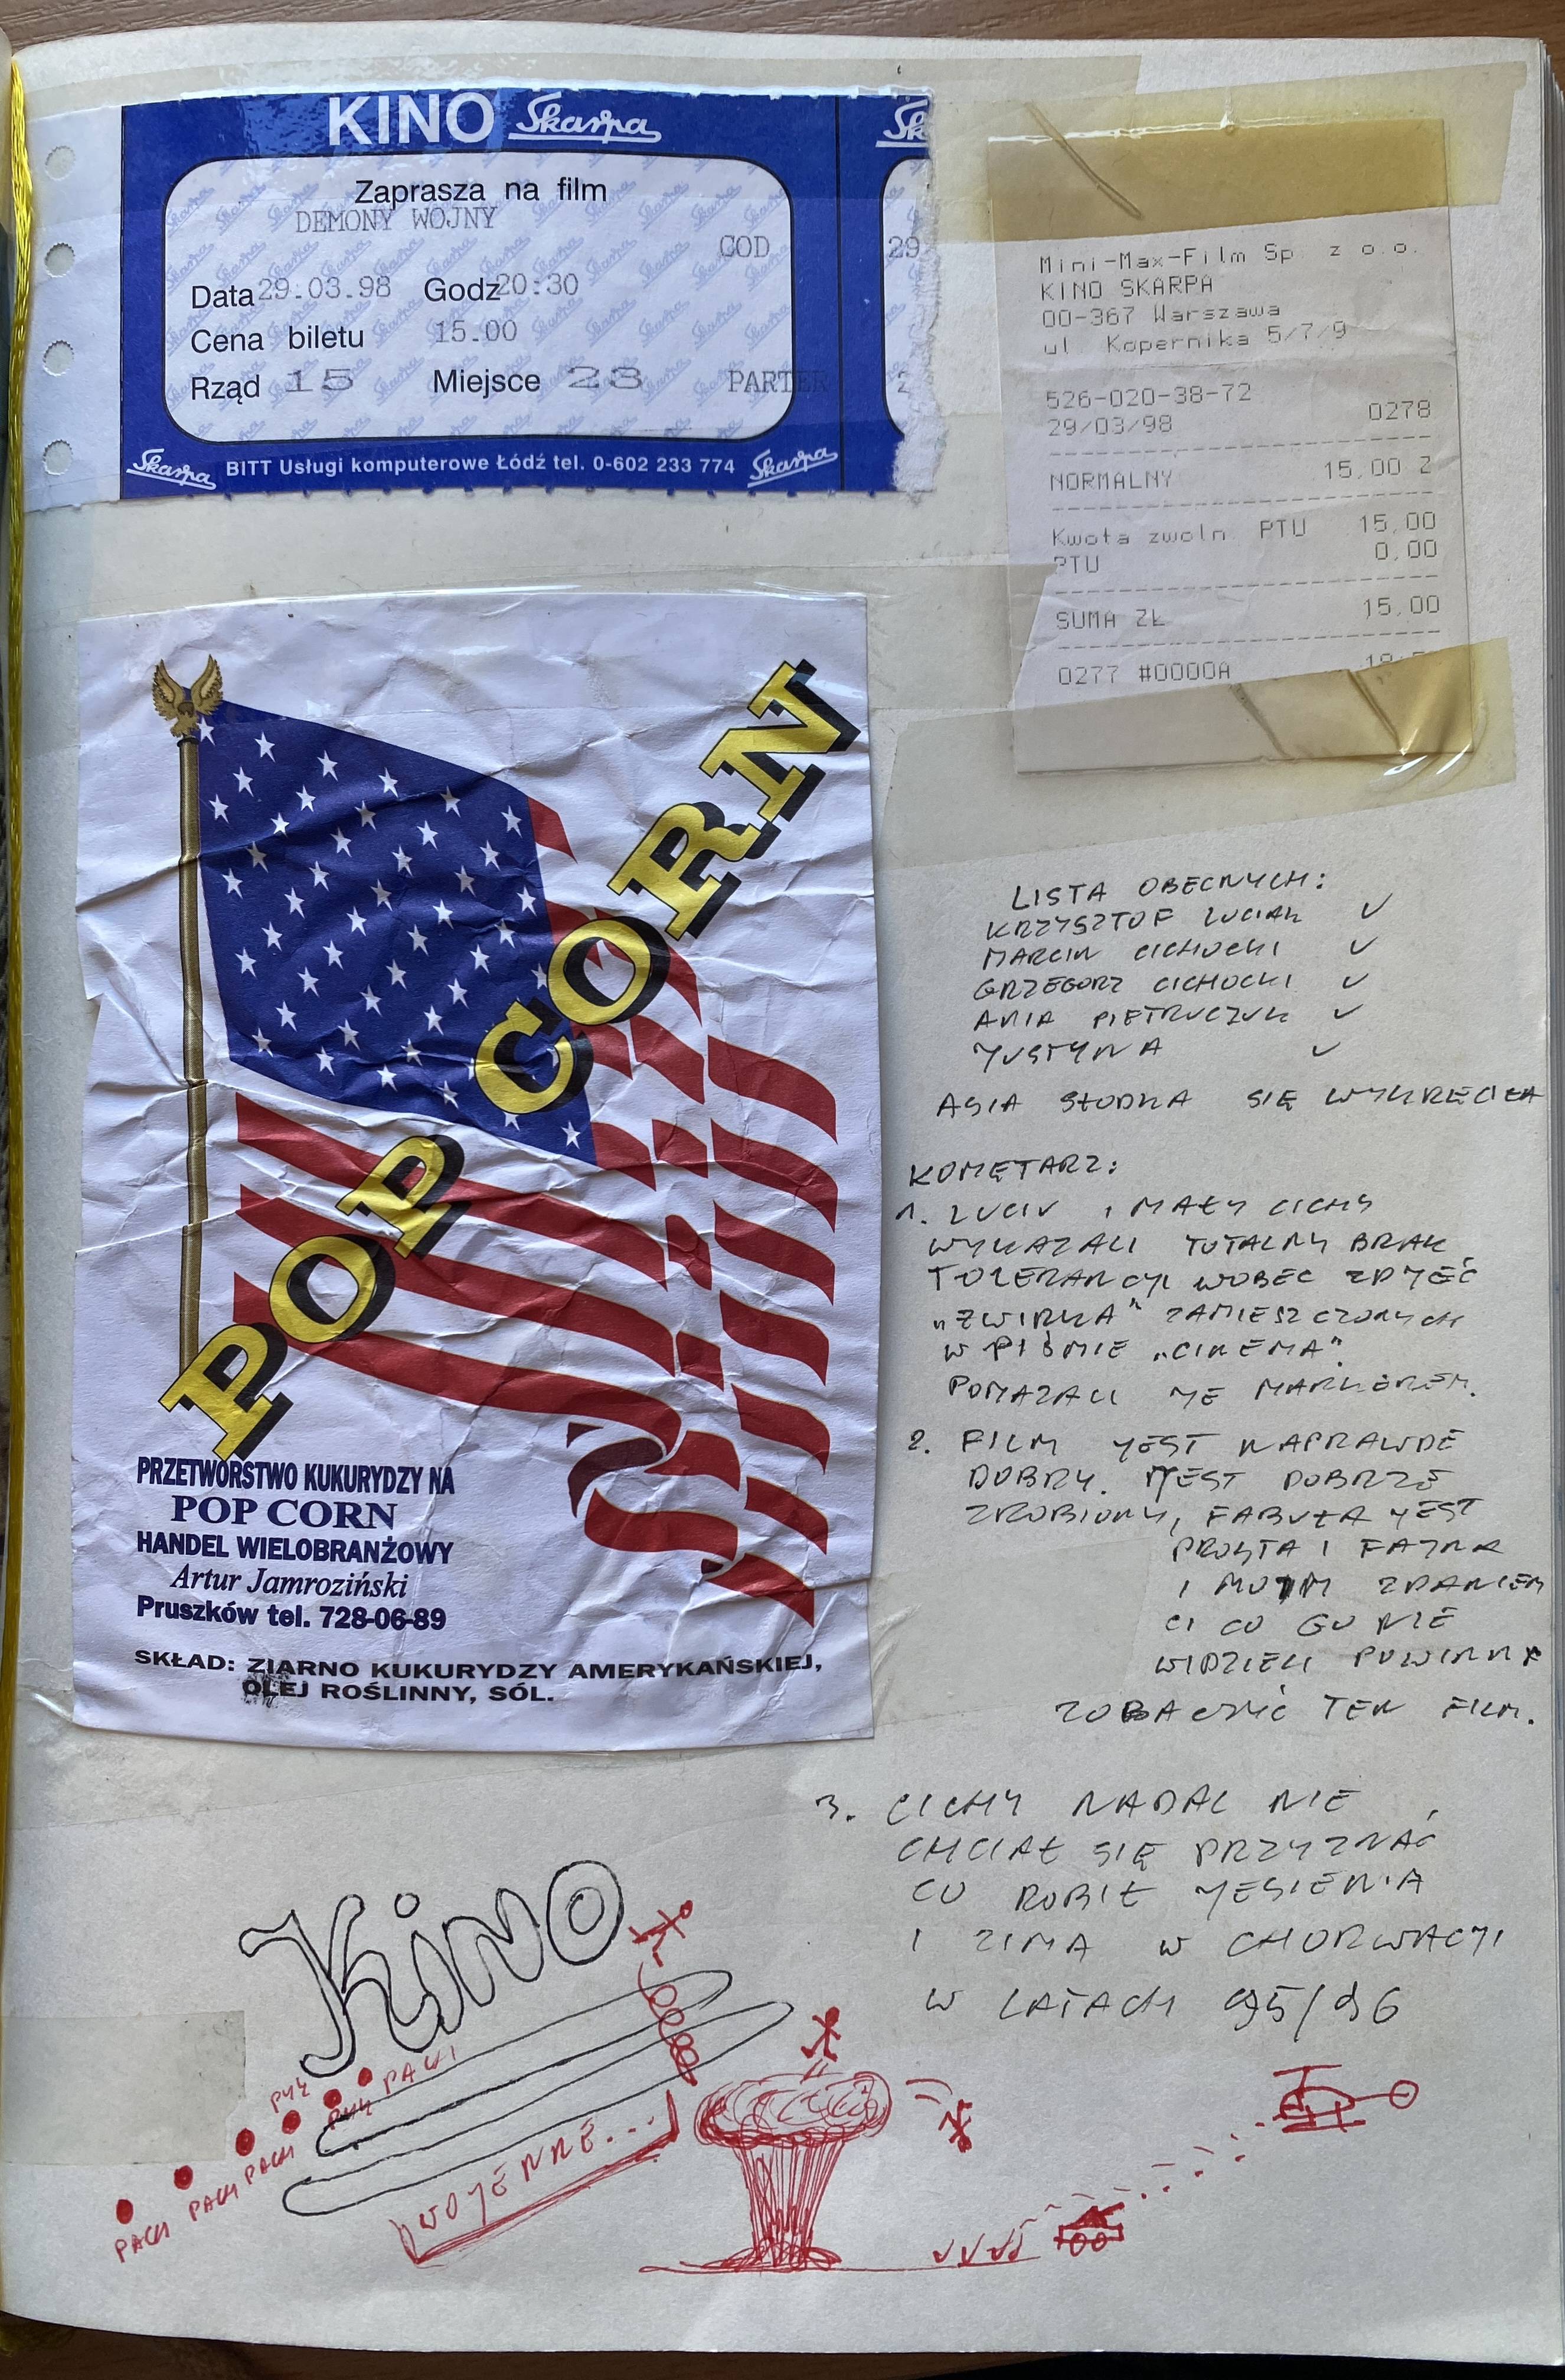 KINO Skarpa
Zaprasza na film
DEMONY WOJNY
COD
Data 29.03.98 Godz 20:30
Cena biletu 15.00
Rząd 15 Miejsce 23 PARTER
Skarpa BITT Usługi komputerowe Łódź tel. 0-602 233 774 Skarpa
Sk
29
2
Mini-Max-Film Sp. z o.o.
KINO SKARPA
00-367 Warszawa
ul. Kopernika 5/7/9
526-020-38-72
29/03/98 0278
NORMALNY 15,00 Z
Kwota zwoln. PTU 15,00
PTU 0,00
SUMA ZŁ 15,00
0277 #0000A
POP CORN
PRZETWÓRSTWO KUKURYDZY NA
POP CORN
HANDEL WIELOBRANŻOWY
Artur Jamroziński
Pruszków tel. 728-06-89
SKŁAD: ZIARNO KUKURYDZY AMERYKAŃSKIEJ,
OLEJ ROŚLINNY, SÓL.
LISTA OBECNYCH:
KRZYSZTOF LUCIAK ✓
MARCIN CICHOCKI ✓
GRZEGORZ CICHOCKI ✓
ANIA PIETRUCZUK ✓
JUSTYNA ✓
ASIA SŁODKA SIĘ WYKRĘCIŁA
KOMĘTARZ:
1. LUCIU I MAŁY CICHY
WYKAZALI TOTALNY BRAK
TOLERANCJI WOBEC ZDJĘĆ
„ŻWIRKA" ZAMIESZCZONYCH
W PIŚMIE „CINEMA".
POMAZALI JE MARKEREM.
2. FILM JEST NAPRAWDĘ
DOBRY. JEST DOBRZE
ZROBIONY, FABUŁA JEST
PROSTA I FAJNA
I MOIM ZDANIEM
CI CO GO NIE
WIDZIELI POWINNI
ZOBACZYĆ TEN FILM.
3. CICHY NADAL NIE
CHCIAŁ SIĘ PRZYZNAĆ
CO ROBIŁ JESIENIĄ
I ZIMĄ W CHORWACJI
W LATACH 95/96
Kino
WOJENNE...
PYK PYK PACH
PACH PACH PACH